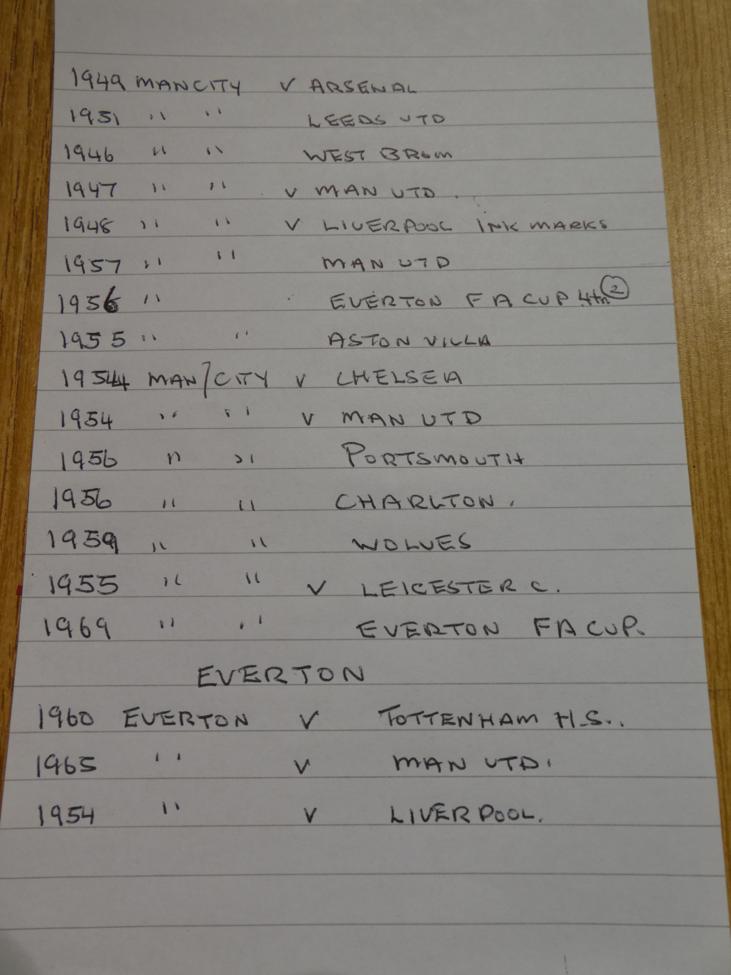 1949 MAN CITY V ARSENAL
1951 " " LEEDS UTD
1946 " " WEST BROM
1947 " " V MAN UTD.
1948 " " V LIVERPOOL INK MARKS
1957 " " MAN UTD
1956 " EVERTON F A CUP 4th ②
1955 " " ASTON VILLA
1954 MAN/CITY V CHELSEA
1954 " " V MAN UTD
1956 " " PORTSMOUTH
1956 " " CHARLTON.
1959 " " WOLVES
1955 " " V LEICESTER C.
1969 " " EVERTON FA CUP.
EVERTON
1960 EVERTON V TOTTENHAM H.S..
1965 " V MAN UTD.
1954 " V LIVERPOOL.